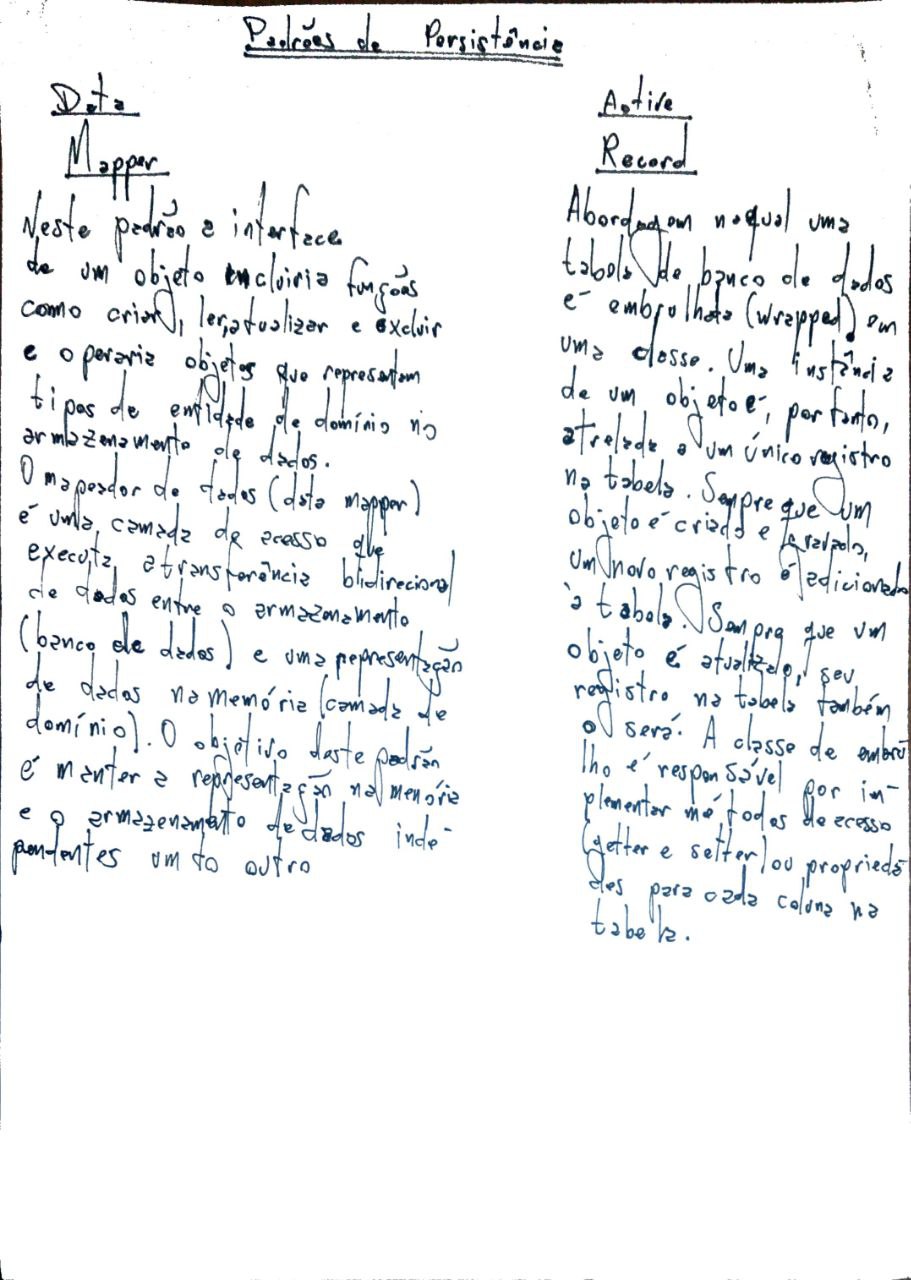 Padrões de Persistência
Data
Mapper
Neste padrão a interface
de um objeto incluiria funções
como criar, ler, atualizar e excluir
e operaria objetos que representam
tipos de entidade de domínio no
armazenamento de dados.
O mapeador de dados (data mapper)
é uma camada de acesso que
executa a transferência bidirecional
de dados entre o armazenamento
(banco de dados) e uma representação
de dados na memória (camada de
domínio). O objetivo deste padrão
é manter a representação na memória
e o armazenamento de dados inde-
pendentes um do outro
Active
Record
Abordagem na qual uma
tabela de banco de dados
é embrulhada (wrapped) em
uma classe. Uma instância
de um objeto é, portanto,
atrelada a um único registro
na tabela. Sempre que um
objeto é criado e gravado,
um novo registro é adicionado
à tabela. Sempre que um
objeto é atualizado, seu
registro na tabela também
o será. A classe de embru
lho é responsável por im-
plementar métodos de acesso
(getter e setter) ou proprieda
des para cada coluna na
tabela.